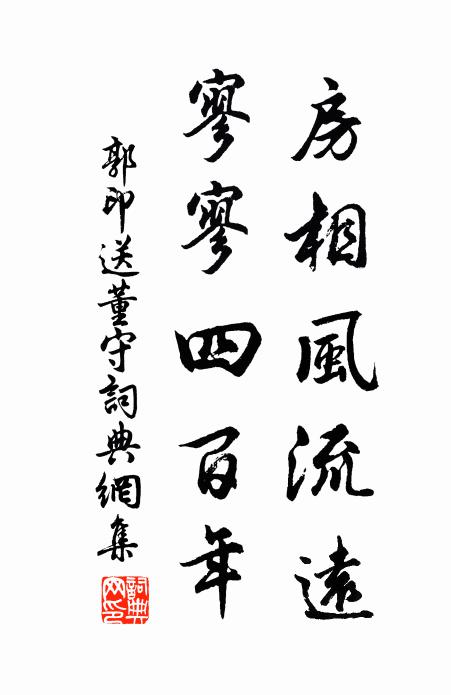 房相風流遠
寥寥四百年
郭印送董守詞典網集
詞典網印